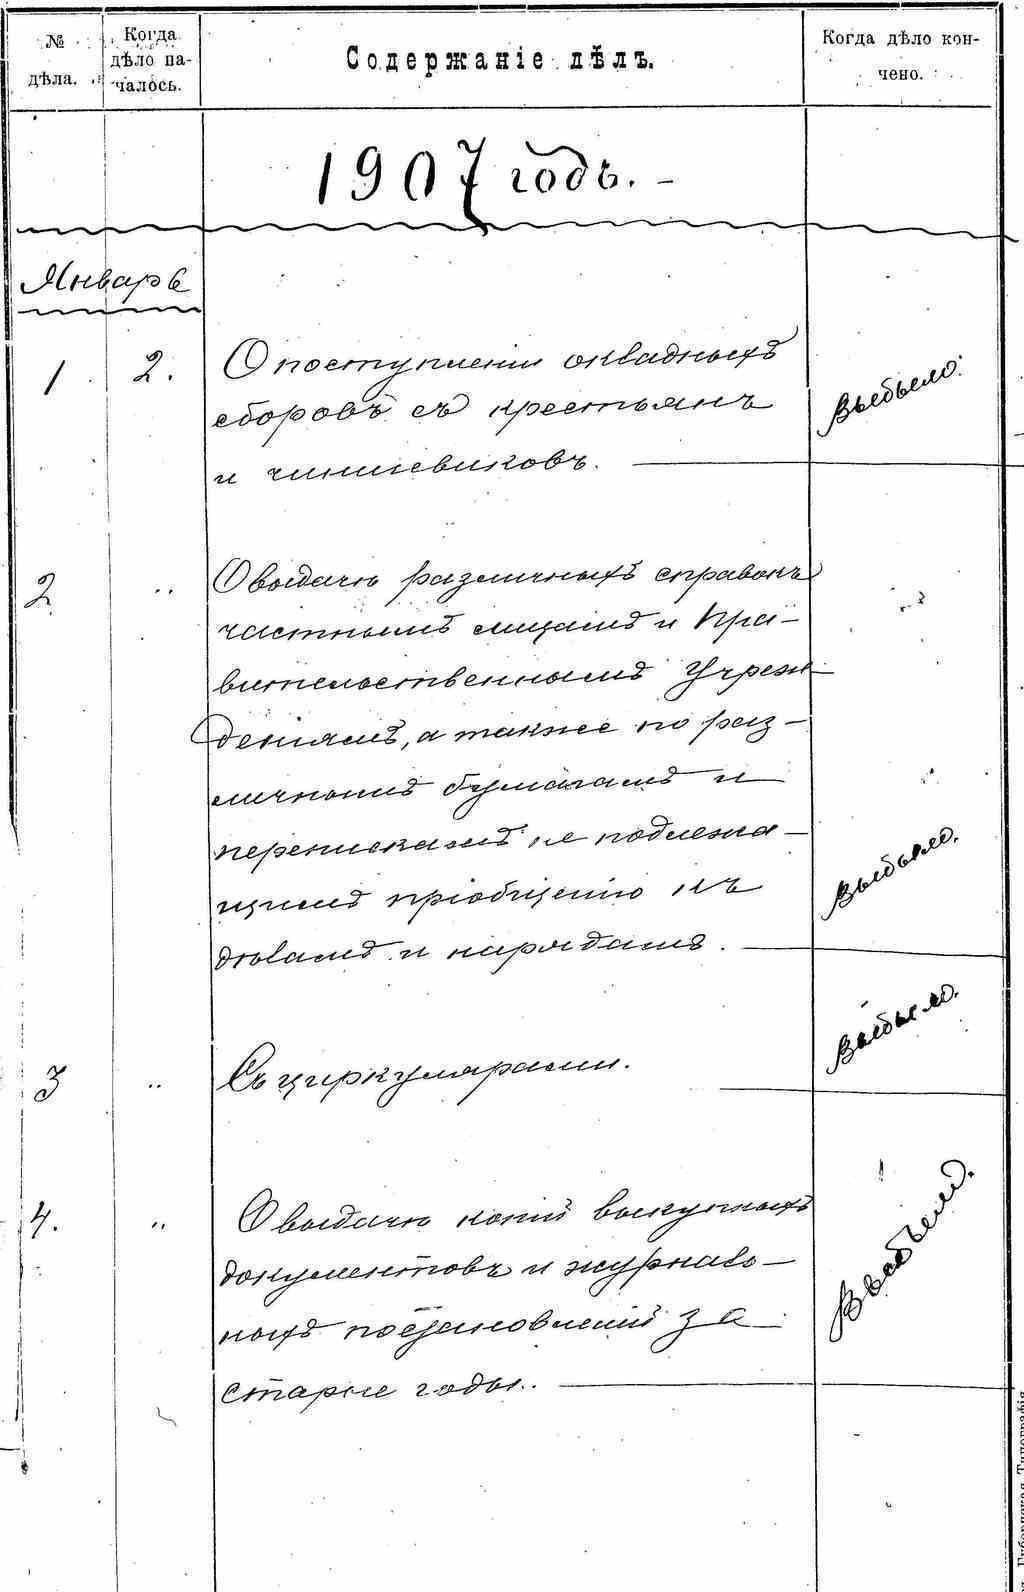 № дѣла.
Когда дѣло началось.
Содержаніе дѣлъ.
Когда дѣло кончено.
1907 годъ. –
Январь
1 2. О поступленіи окладныхъ
сборовъ съ крестьянъ
и чиншевиковъ.
Выбыло.
2 „ О выдачѣ различныхъ справокъ
частнымъ лицамъ и Пра–
вительственнымъ Учреж–
деніямъ, а также по раз–
личнымъ бумагамъ и
перепискамъ не подлежа–
щимъ пріобщенію къ
дѣламъ и нарядамъ.
Выбыло.
3 „ Съ циркулярами.
Выбыло.
4. „ О выдачѣ копій выкупныхъ
документовъ и журналь–
ныхъ постановленій за
старые годы.
Выбыло.
Губернская Типографія